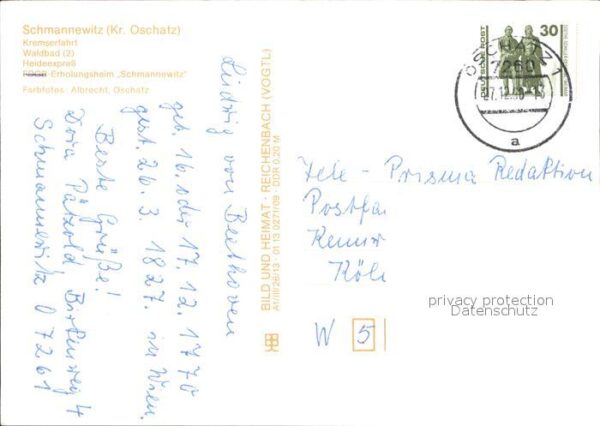 Schmannewitz (Kr. Oschatz)
Kremserfahrt
Waldbad (2)
Heideexpreß
Erholungsheim „Schmannewitz"
Farbfotos: Albrecht, Oschatz
Ludwig von Beethoven
geb. 16. oder 17. 12. 1770
gest. 26. 3. 1827. in Wien.
Beste Grüße!
Dora Pätzold Birkenweg 4
Schmannewitz 07261
BILD UND HEIMAT · REICHENBACH (VOGTL)
A1/III/26/13 · 01 13 0271/09 · DDR 0,20 M
30
DEUTSCHE POST
OSCHATZ 1
7260
a
Tele - Prisma Redaktion
Postfa
Kennw
Köln
privacy protection
Datenschutz
W 5